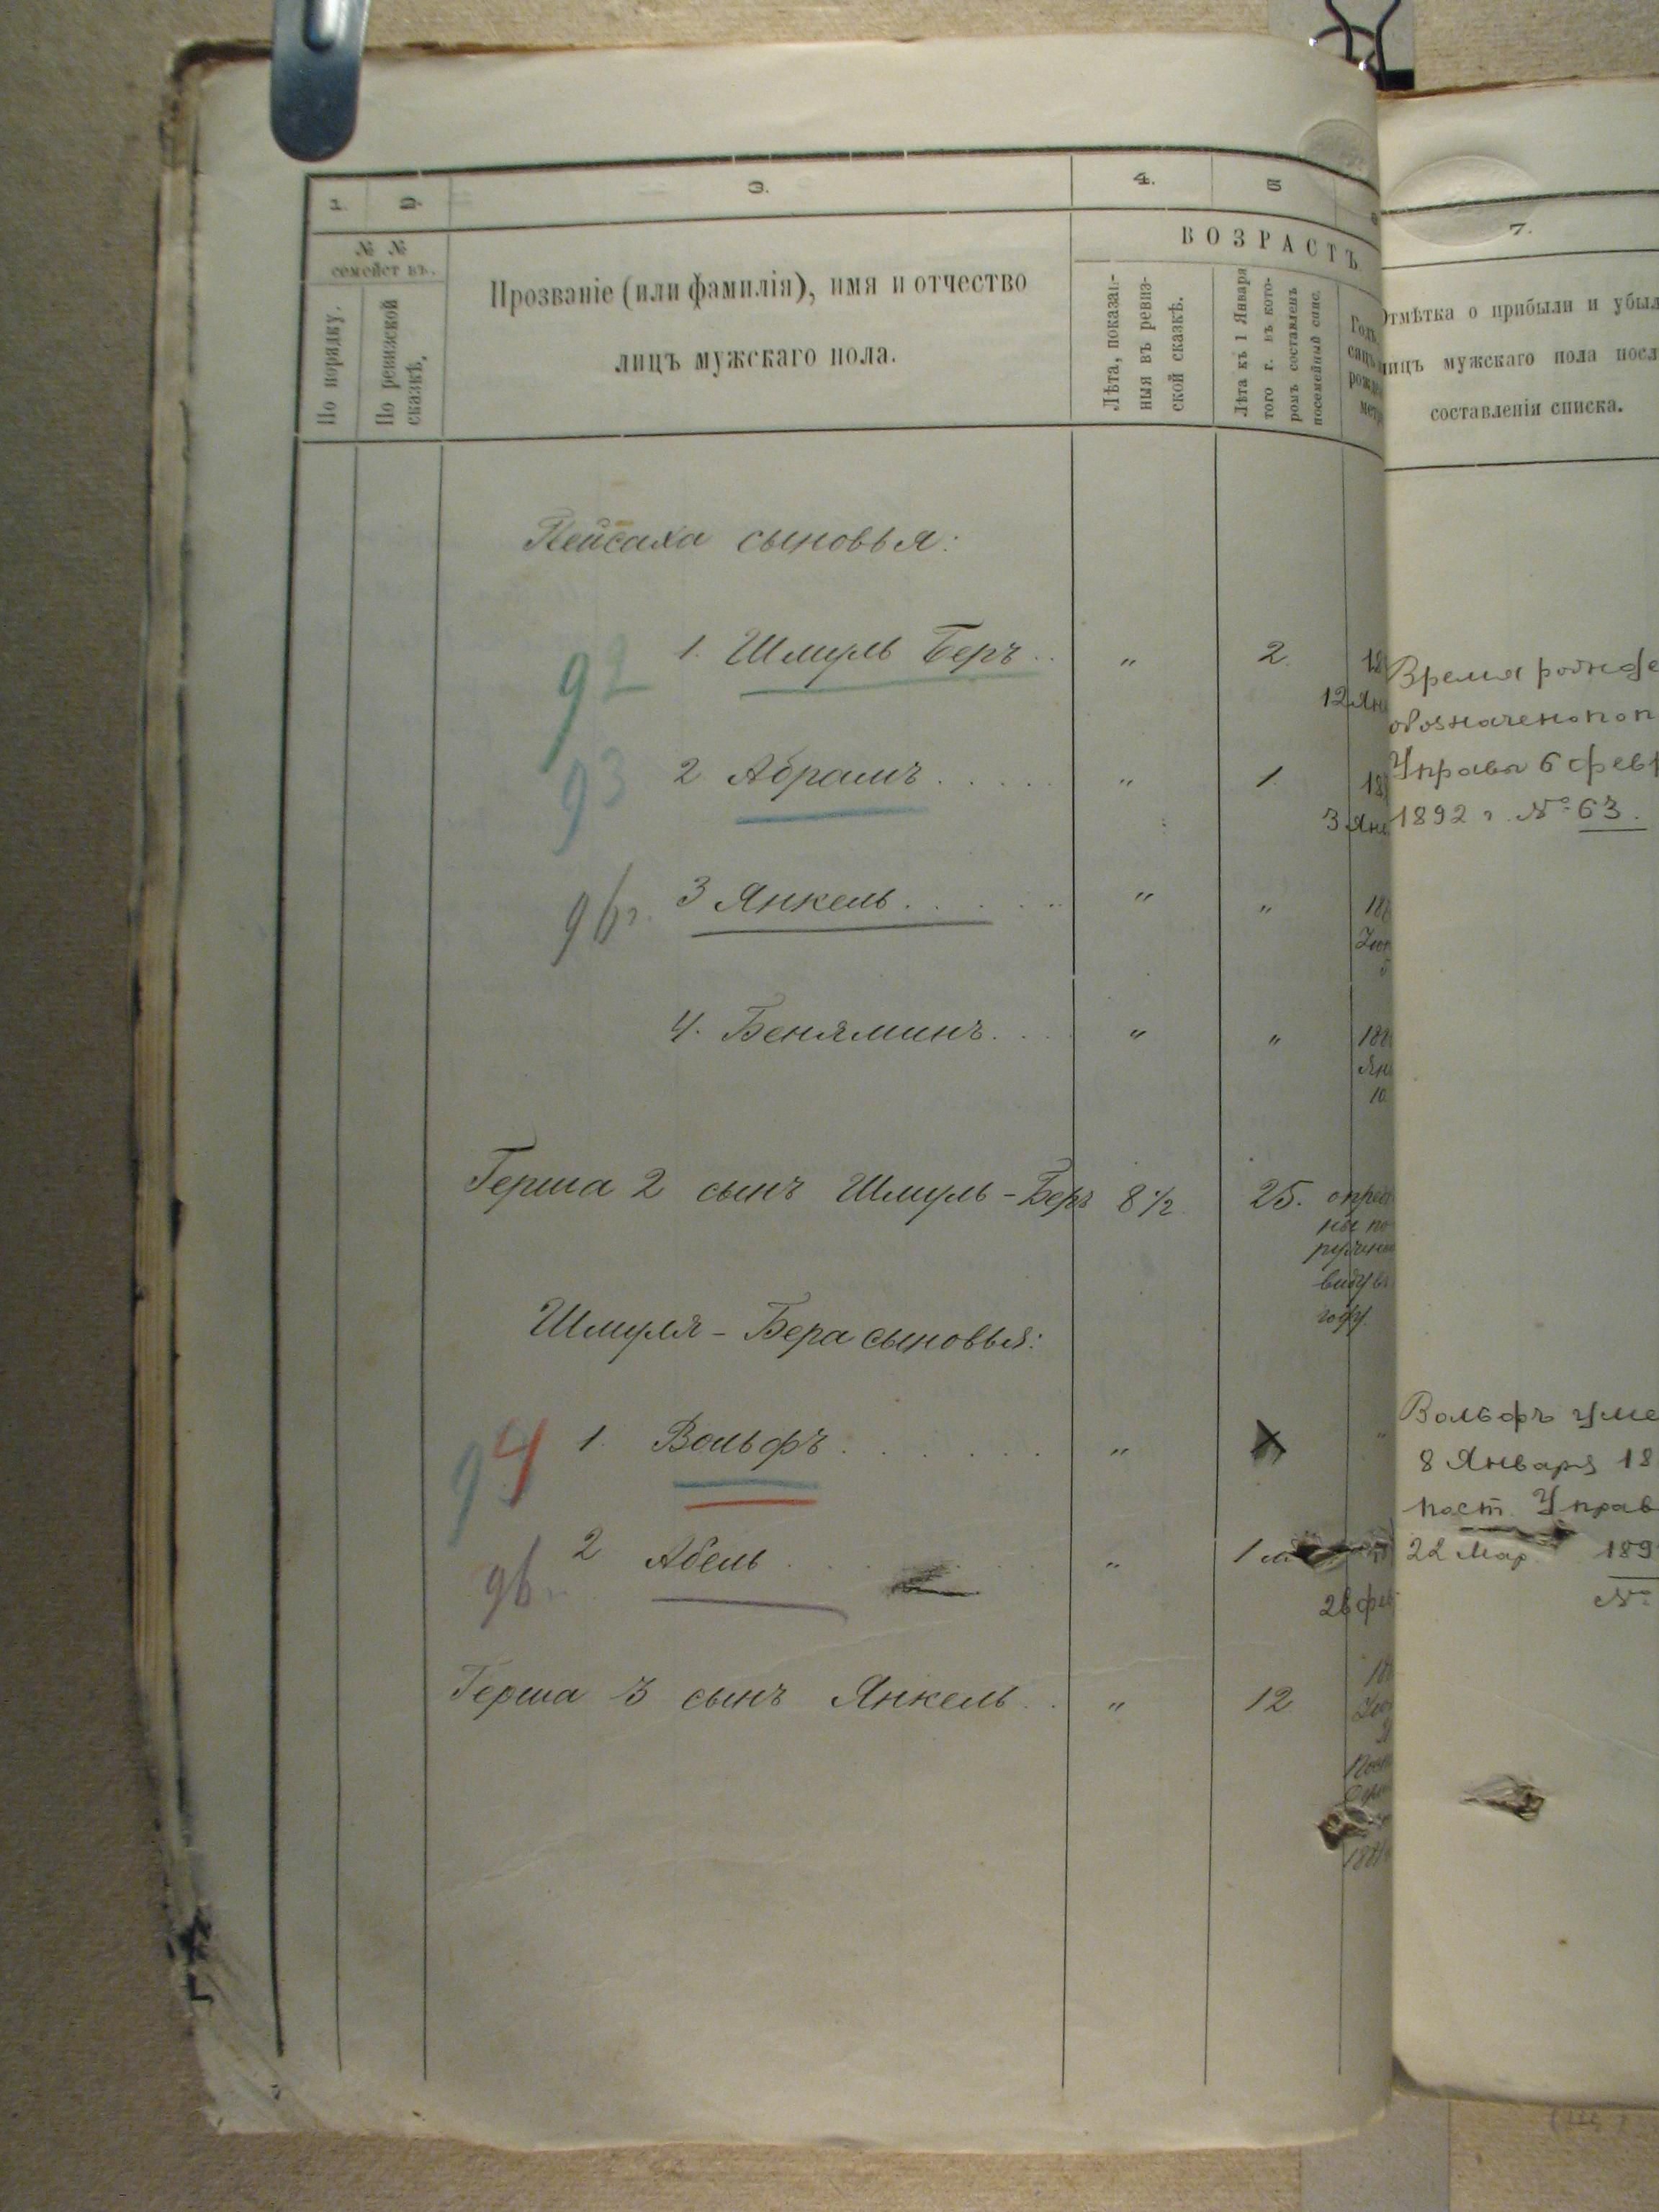 1. 2. 3. 4. 5
№ №
семействъ.
По порядку.
По ревизской
сказкѣ.
Прозваніе (или фамилія), имя и отчество
лицъ мужскаго пола.
ВОЗРАСТЪ.
Лѣта, показан-
ныя въ ревиз-
ской сказкѣ.
Лѣта къ 1 Января
того г. въ кото-
ромъ составленъ
посемейный спис.
7.
Отмѣтка о прибыли и убыл
лицъ мужскаго пола посл
составленія списка.
Пейсаха сыновья:
92 1. Шмуль Беръ . . „ 2. 18
12 Янв
Время рожде
обозначено по п
93 2 Абрамъ . . . . . „ 1. 18
3 Янв
Управы 6 февр
1892 г. № 63.
96г. 3 Янкель . . . . . „ „ 188
4. Беняминъ . . . „ „ 188
Янв
10
Герша 2 сынъ Шмуль-Беръ 8 1/2 25.
виду въ
году.
Шмуля-Бера сыновья:
94 1. Вольфъ . . . . . . „ „
Вольфъ уме
8 Января 18
пост. Управ
22 Мар 189
№
96 2 Абель . . . . „ 1 м
26 фев
Герша 3 сынъ Янкель . . „ 12
188